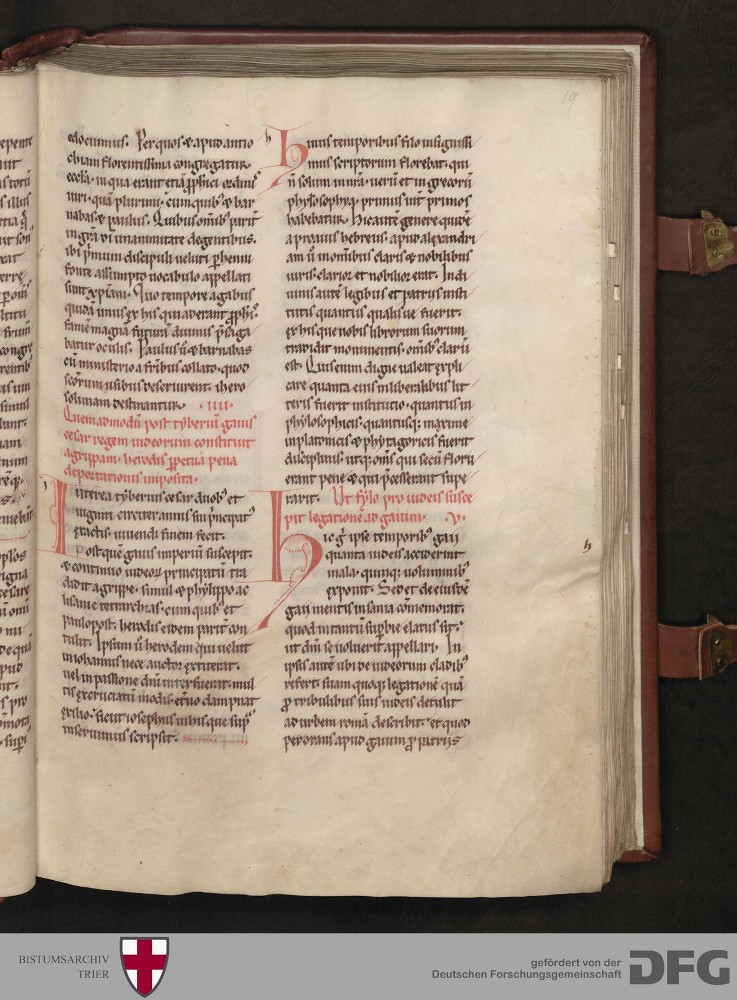 19
edocuimus. Per quos & apud antio
chiam florentissima congregatur
eccl̄a. in qua erant etiā p̱phici ordinis
uiri. quā plurimi. cum quib; & bar
nabas & paulus. Quibus om̄ib; parit̄
in gr̄a d̄i unanimitate degentibus.
ibi p̄mum discipuli ueluti p̱henni
fonte assumpto uocabulo appellati
sunt xp̄iani. Quo tempore agabus
quidā unus ex his qui aderant p̱phis.
famē magnā futurā diuinis p̄saga
batur oculis. Paulus ū & barnabas
cū ministerio a frīb; collato. quod
sc̄orum usibus deseruirent. ihero
solimam destinantur. .IIII.
Quemadmodū post tyberiū gaius
cesar regem iudeorum constituit
agrippam. herodis p̱petua pena
deportationis imposita.
Interea tyberius cesar duob; et
uiginti circiter annis sui p̄ncipat᷒
exactis. uiuendi finem fecit.
Post quē gaius imperiū suscepit.
& continuo iudeoꝝ principatū tra
didit agrippe. simul & phylippo ac
lisanie tetrarchias. cum quib; et
paulo post. herodis eidem parit̄ con
tulit. Ipsum ū herodem qui uelut
in iohannis nece auctor extiterat.
uel in passione dn̄i interfuerat. mul
tis excruciatū modis. et̄no dampnat
exilio. sicut iosephus in his que sup᷒
inseruimus scripsit.
h
His temporibus filo insignissi
mus scriptorum florebat. qui
n̄ solum in nr̄a. uerū et in grecorū
phylosophya primus int̄ primos
habebatur. Hic autē genere quidē
a proauis hebreus. apud alexandri
am ū in om̄ibus claris & nobilibus
uiris. clarior et nobilior erat. In di
uinis autē legibus et patriis insti
tutis quantus qualisue fuerit.
ex his que nobis librorum suorum
tradidit monimentis. om̄ib; clarū
est. Quis enim digne ualeat expli
care quanta eius in liberalibus lit
teris fuerit institutio. quantus in
phylosophicis. quantusq; maxime
in platonicis & phytagoricis fuerit
disciplinis. ut q̨ om̄s qui secū floru
erant pene & qui p̄cesserant supe
rarit. Ut fylo pro iudeis susce
pit legationē ad gaium. .v.
Hic g̊ ipse temporib; gaii
quanta iudeis acciderint
mala. quinq; uoluminib;
exponit. Sed et de eiusdē
gaii mentis insania cōmemorat.
quod in tantū sup̱bie elatus sit.
ut dm̄ se uoluerit appellari. In
ipsis autē ubi de iudeorum cladib;
refert. suam quoq; legationē quā
p̱ tribulibus suis iudeis detulit
ad urbem romā describit. et quod
perorans apud gaium p̱ patriis
h
BISTUMSARCHIV
TRIER
gefördert von der
Deutschen Forschungsgemeinschaft
DFG